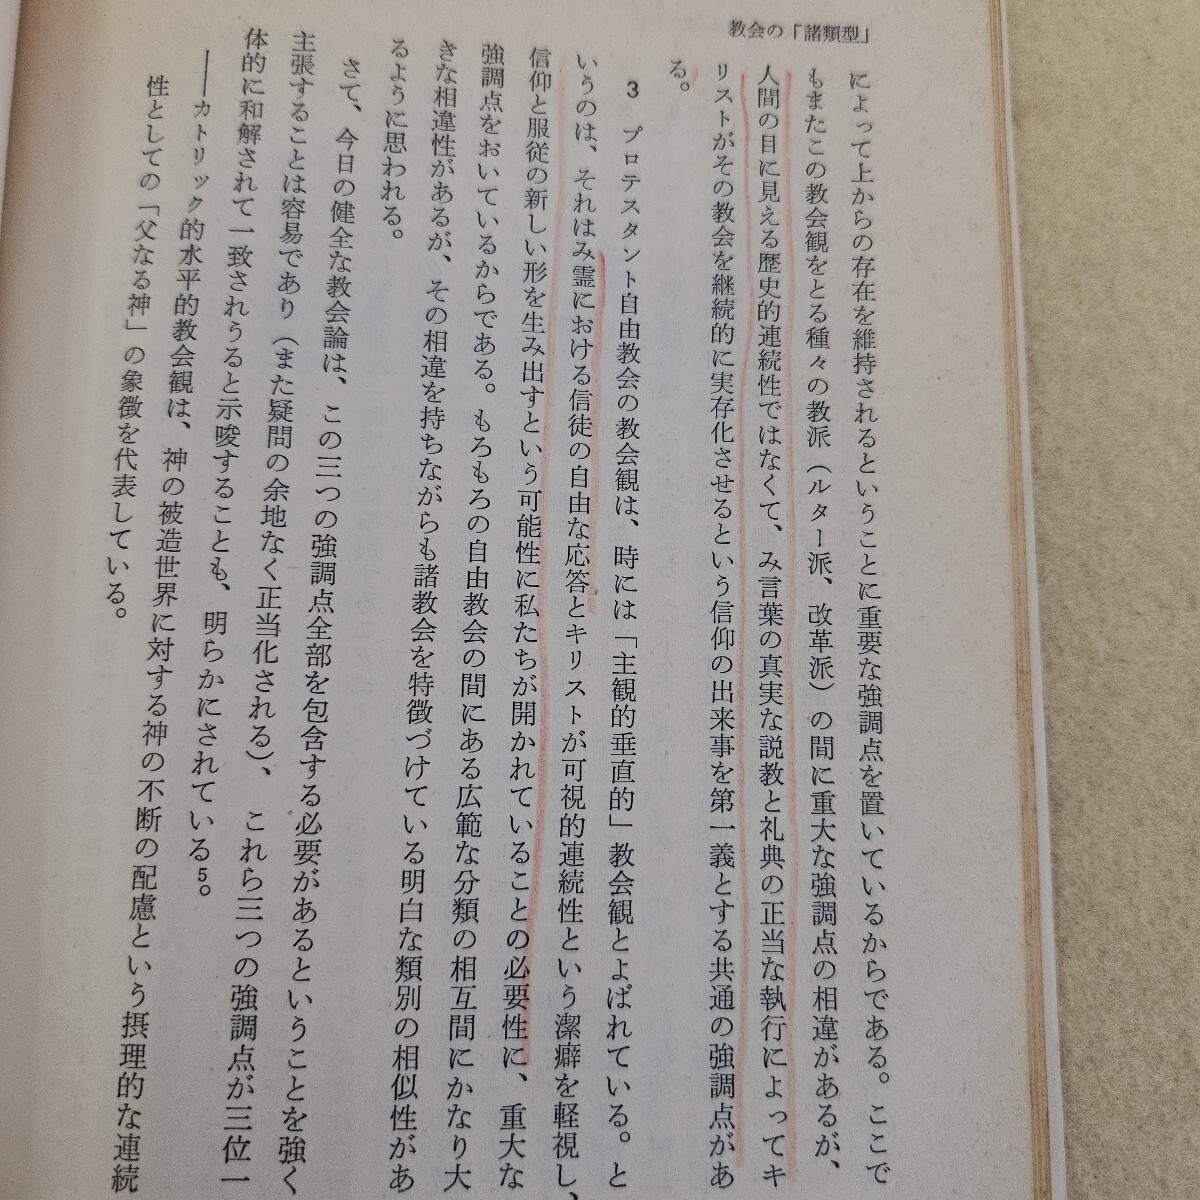 教会の「諸類型」
によって上からの存在を維持されるということに重要な強調点を置いているからである。ここで
もまたこの教会観をとる種々の教派（ルター派、改革派）の間に重大な強調点の相違があるが、
人間の目に見える歴史的連続性ではなくて、み言葉の真実な説教と礼典の正当な執行によってキ
リストがその教会を継続的に実存化させるという信仰の出来事を第一義とする共通の強調点があ
る。
3 プロテスタント自由教会の教会観は、時には「主観的垂直的」教会観とよばれている。と
いうのは、それはみ霊における信徒の自由な応答とキリストが可視的連続性という潔癖を軽視し、
信仰と服従の新しい形を生み出すという可能性に私たちが開かれていることの必要性に、重大な
強調点をおいているからである。もろもろの自由教会の間にある広範な分類の相互間にかなり大
きな相違性があるが、その相違を持ちながらも諸教会を特徴づけている明白な類別の相似性があ
るように思われる。
さて、今日の健全な教会論は、この三つの強調点全部を包含する必要があるということを強く
主張することは容易であり（また疑問の余地なく正当化される）、これら三つの強調点が三位一
体的に和解されて一致されうると示唆することも、明らかにされている5。
――カトリック的水平的教会観は、神の被造世界に対する神の不断の配慮という摂理的な連続
性としての「父なる神」の象徴を代表している。